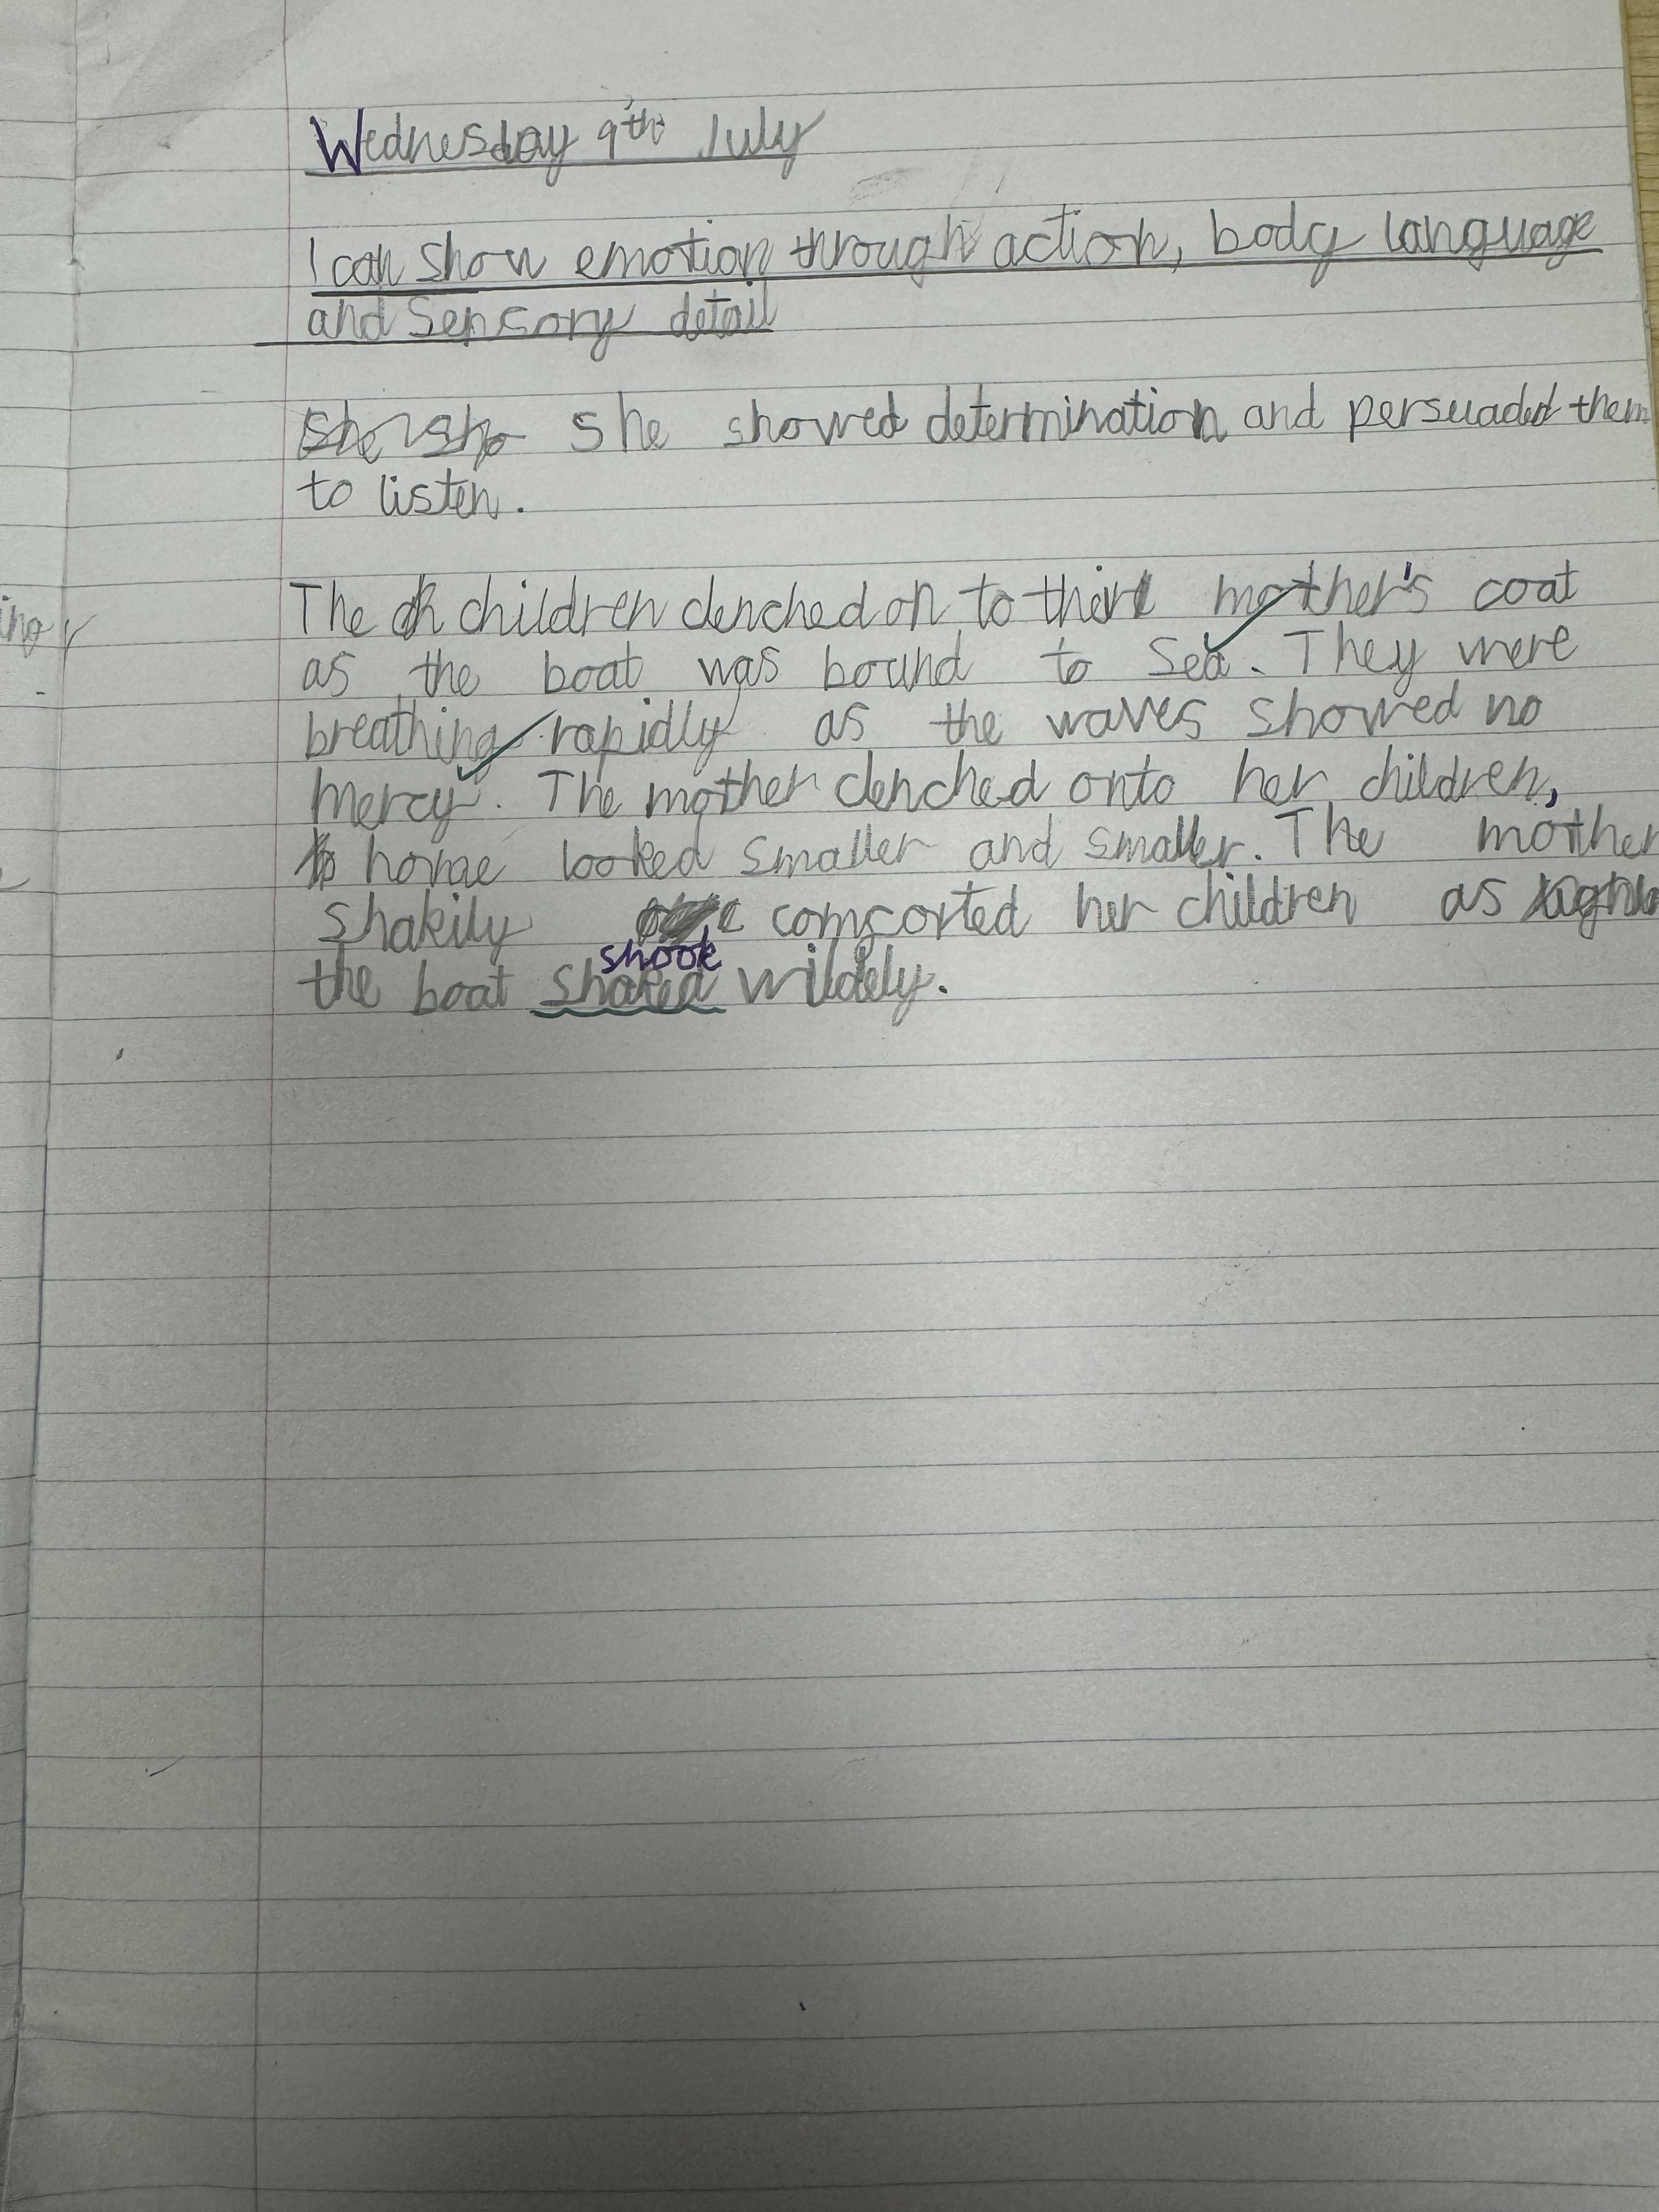 Wednesday 9th July
I can show emotion through action, body language
and Sensory detail
She sho She showed determination and persuaded them
to listen.
The ch children clenched on to thier mother's coat
as the boat was bound to Sea. They were
breathing rapidly as the waves showed no
mercy. The mother clenched onto her children,
home looked smaller and smaller. The mother
shakily comforted her children as
shook
the boat shaked wildely.
ing